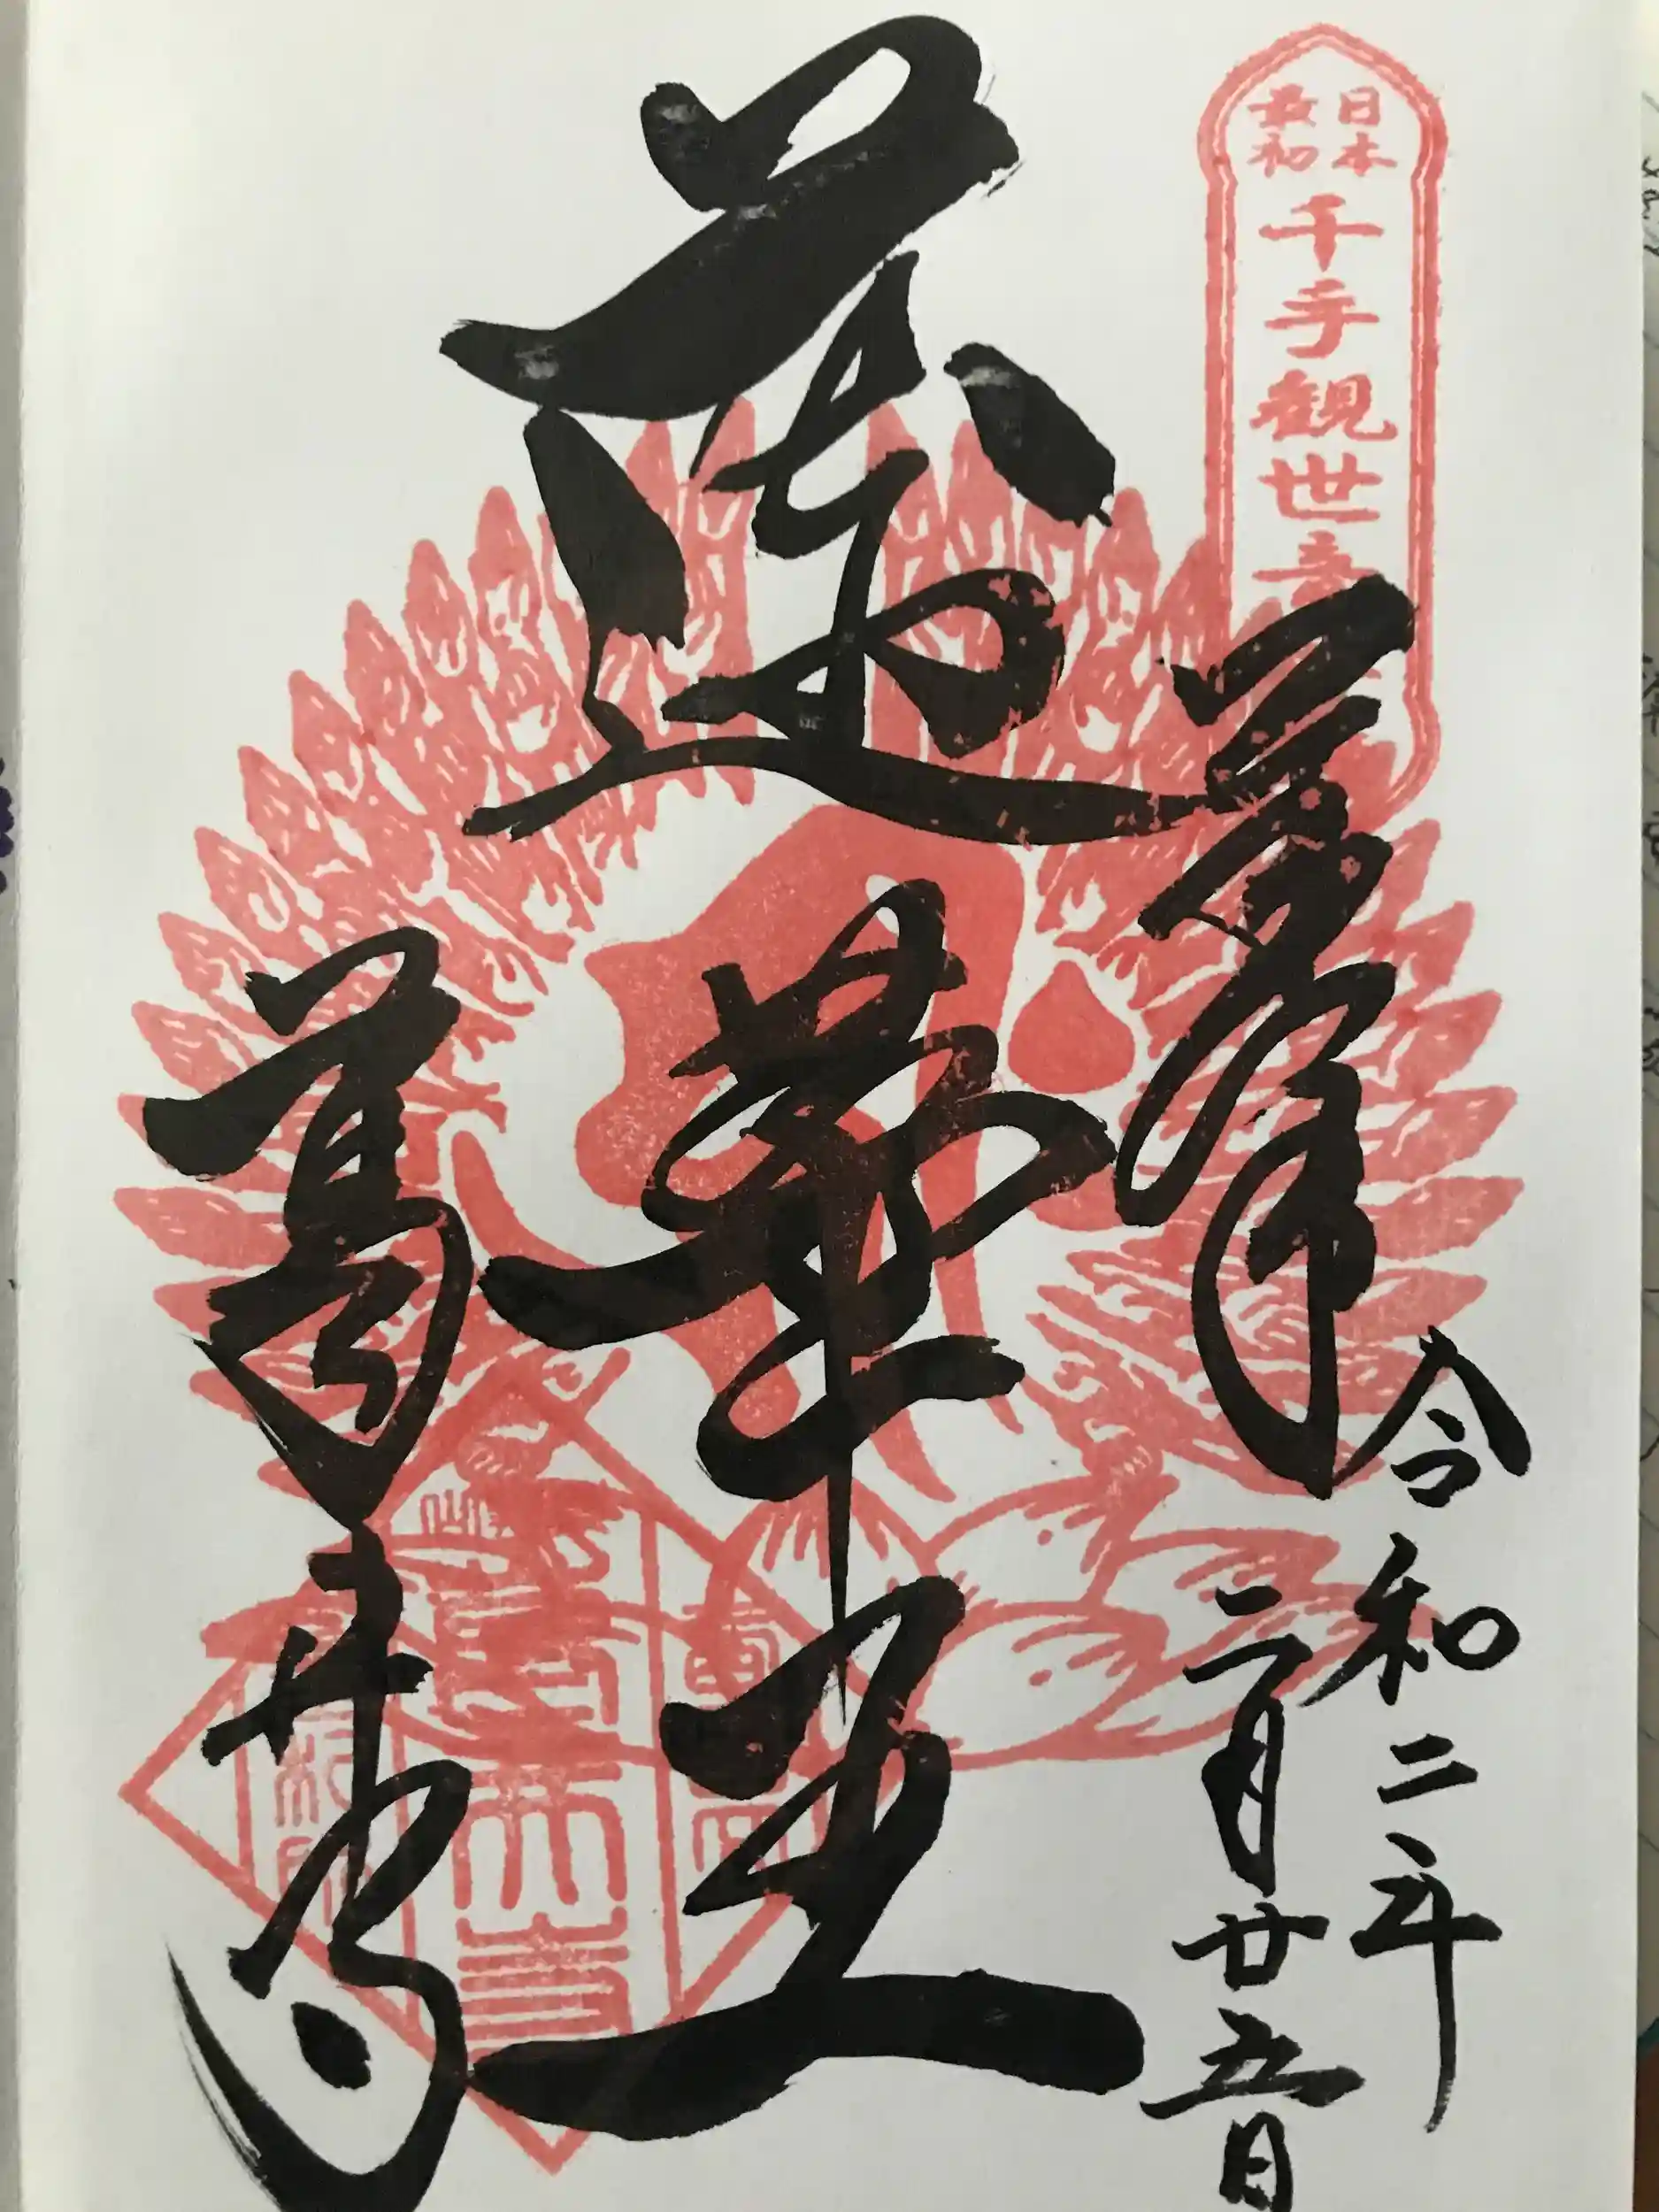 日本
最初
千手観世音
奉拝
令和二年
二月廿五日
蓮華王
葛井寺